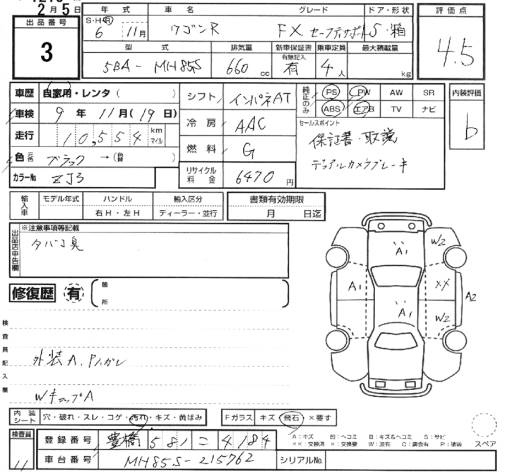 2月5日
出品番号
3
年式 車名 グレード ドア・形状
S・H・R 6 11月 ワゴンR FX セーフティサポートS ・箱
型式 排気量 新車保証書 乗車定員 最大積載量
有無記入
5BA - MH85S 660 cc 有 4人 kg
評価点
4.5
車歴 自家用・レンタ( )
車検 9年 11月(19日)
走行 10,554 km マイル
色 ブラック →(替 )
カラーNo ZJ3
シフト インパネAT
冷房 AAC
燃料 G
リサイクル料金 6470円
純正のみ PS PW AW SR
ABS エアB TV ナビ
セールスポイント
保証書・取説
デュアルカメラブレーキ
内装評価
b
輸入車 モデル年式 ハンドル 輸入区分
右H・左H ディーラー・並行
書類有効期限
月 日迄
出品店申告欄
※注意事項等記載
タバコ臭
修復歴 有 箇所
検査員記入欄
外装A,
WキップA
A1 W2
A1 XX A2
A1 W2
内装シート 穴・破れ・スレ・コゲ・汚れ・キズ・黄ばみ
Fガラス キズ・飛石・×要す
A:キズ
スペア
検査員
11
登録番号 豊橋 581 こ 4184
車台番号 MH85S-215762 シリアルNo